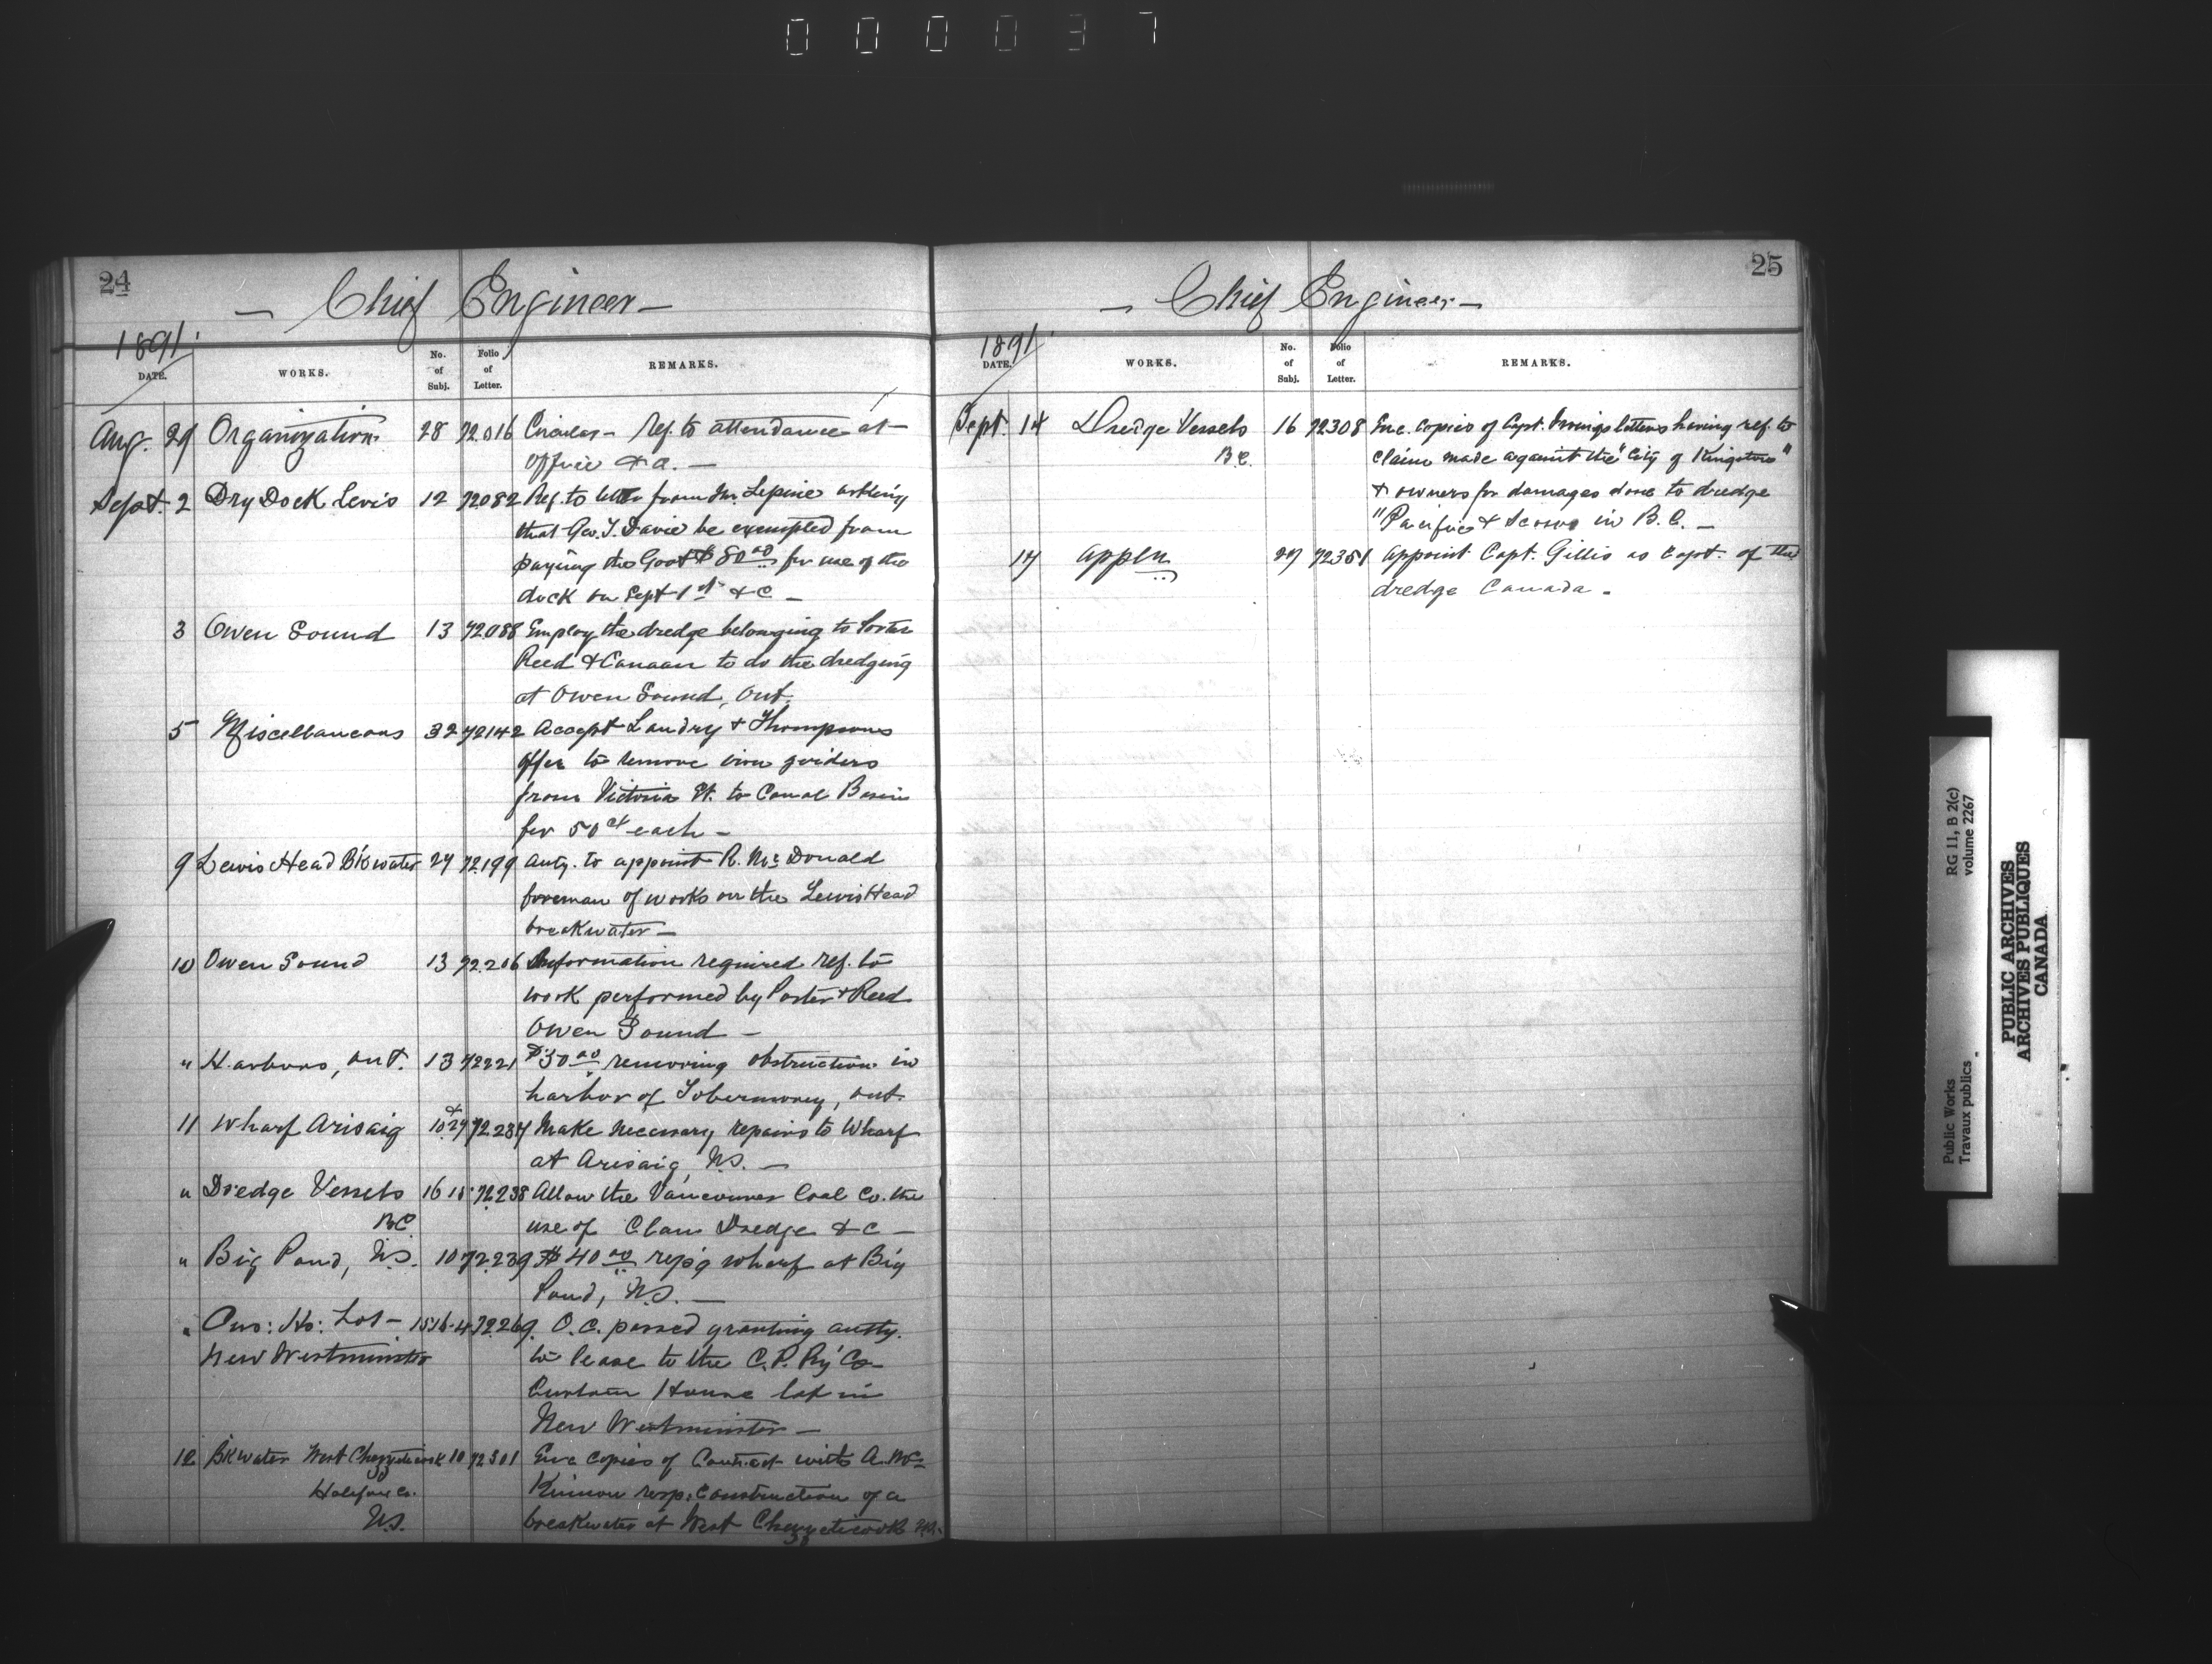 000037
24
— Chief Engineer —
1891
DATE. WORKS. No. of Subj. Folio of Letter. REMARKS.
Aug. 29 Organization 28 72016 Circular — Ref. to attendance at
office &a. —
Sept. 2 Dry Dock Levis 12 72082 Ref. to letter from Mr. Lepine asking
that Geo. T. Davie be exempted from
paying the Govt $80.00 for use of the
dock on Sept 1st &c —
3 Owen Sound 13 72088 Employ the dredge belonging to Porter
Reed & Canaan to do the dredging
at Owen Sound, Ont.
5 Miscellaneous 32 72142 Accept Landry & Thompsons
offer to remove iron girders
from Victoria St. to Canal Basin
for 50 ct each —
9 Lewis Head Bk water 27 72199 Auty. to appoint R. McDonald
foreman of works on the Lewis Head
breakwater —
10 Owen Sound 13 72206 Information required ref. to
work performed by Porter & Reed
Owen Sound —
" Harbors, Ont. 13 72221 $30.00 removing obstruction in
harbor of Tobermorey, Ont.
11 Wharf Arisaig 10 & 27 72237 Make necessary repairs to Wharf
at Arisaig, N.S. —
" Dredge Vessels 16 15 72238 Allow the Vancouver Coal Co. the
B.C. use of Clam Dredge &c —
" Big Pond, N.S. 10 72239 $40.00 rep'g wharf at Big
Pond, N.S. —
" Cus: Ho: Lot — 15 16-4 72269 O.C. passed granting auty.
New Westminster to lease to the C.P. Ry' Co
Custom House lot in
New Westminster —
12 Bk water West Chezzetcook 10 72301 Enc copies of Contract with A. Mc
Halifax Co. Kinnon resp: Construction of a
N.S. breakwater at West Chezzetcook N.S.
25
— Chief Engineer —
1891
DATE. WORKS. No. of Subj. Folio of Letter. REMARKS.
Sept. 14 Dredge Vessels 16 72308 Enc. copies of Capt. Irvings letters having ref. to
B.C. claim made against the "City of Kingston"
& owners for damages done to dredge
"Pacific & Scows in B.C. —
17 Appln 27 72351 Appoint Capt. Gillis as Capt. of the
dredge Canada.
RG 11, B 2(c)
volume 2267
Public Works
Travaux publics
PUBLIC ARCHIVES
ARCHIVES PUBLIQUES
CANADA